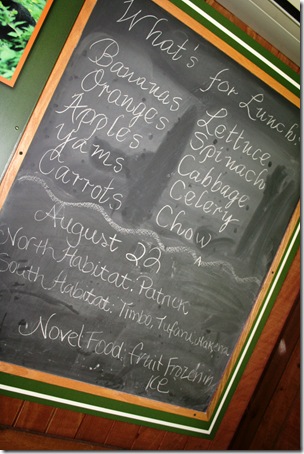 What's for Lunch:
Bananas
Oranges
Apples
Yams
Carrots
Lettuce
Spinach
Cabbage
Celery
Chow
August 22
North Habitat: Patrick
South Habitat: Timbo, Tufani,
Novel Food: Fruit Frozen in
ICE